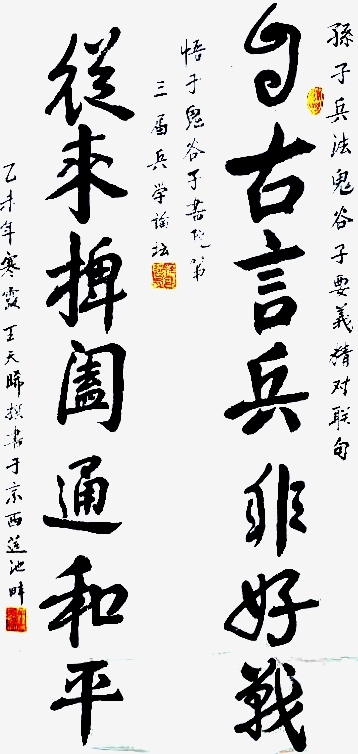 孫子兵法鬼谷子要義精对联句
自古言兵非好戰
悟于鬼谷子書院第
三届兵学論坛
從來捭阖通和平
乙未年寒霞王天晞撰書于京西莲池畔